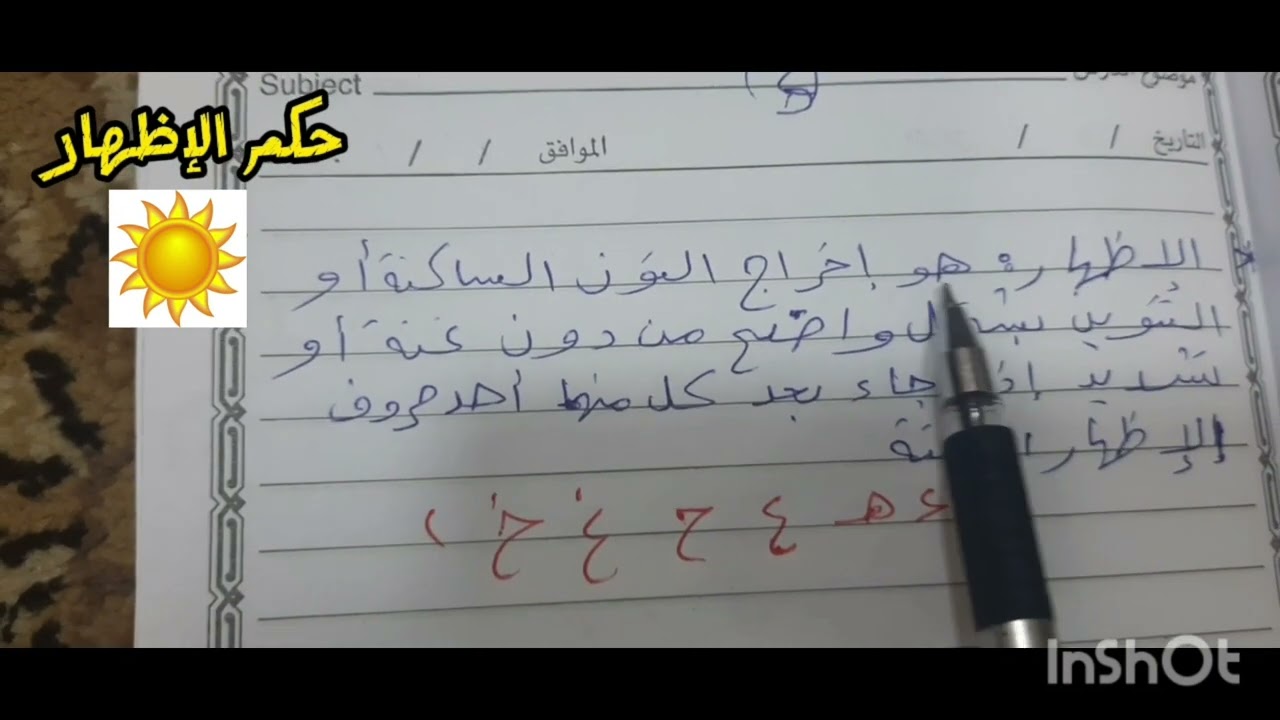 Subject
حكم الإظهار
التاريخ / / الموافق / /
الاظهار: هو إخراج النون الساكنة أو
التنوين بشكل واضح من دون غنة أو
تشديد إذا جاء بعد كل منهما أحد حروف
الإظهار
ء هـ ع ح غ خ
InShOt